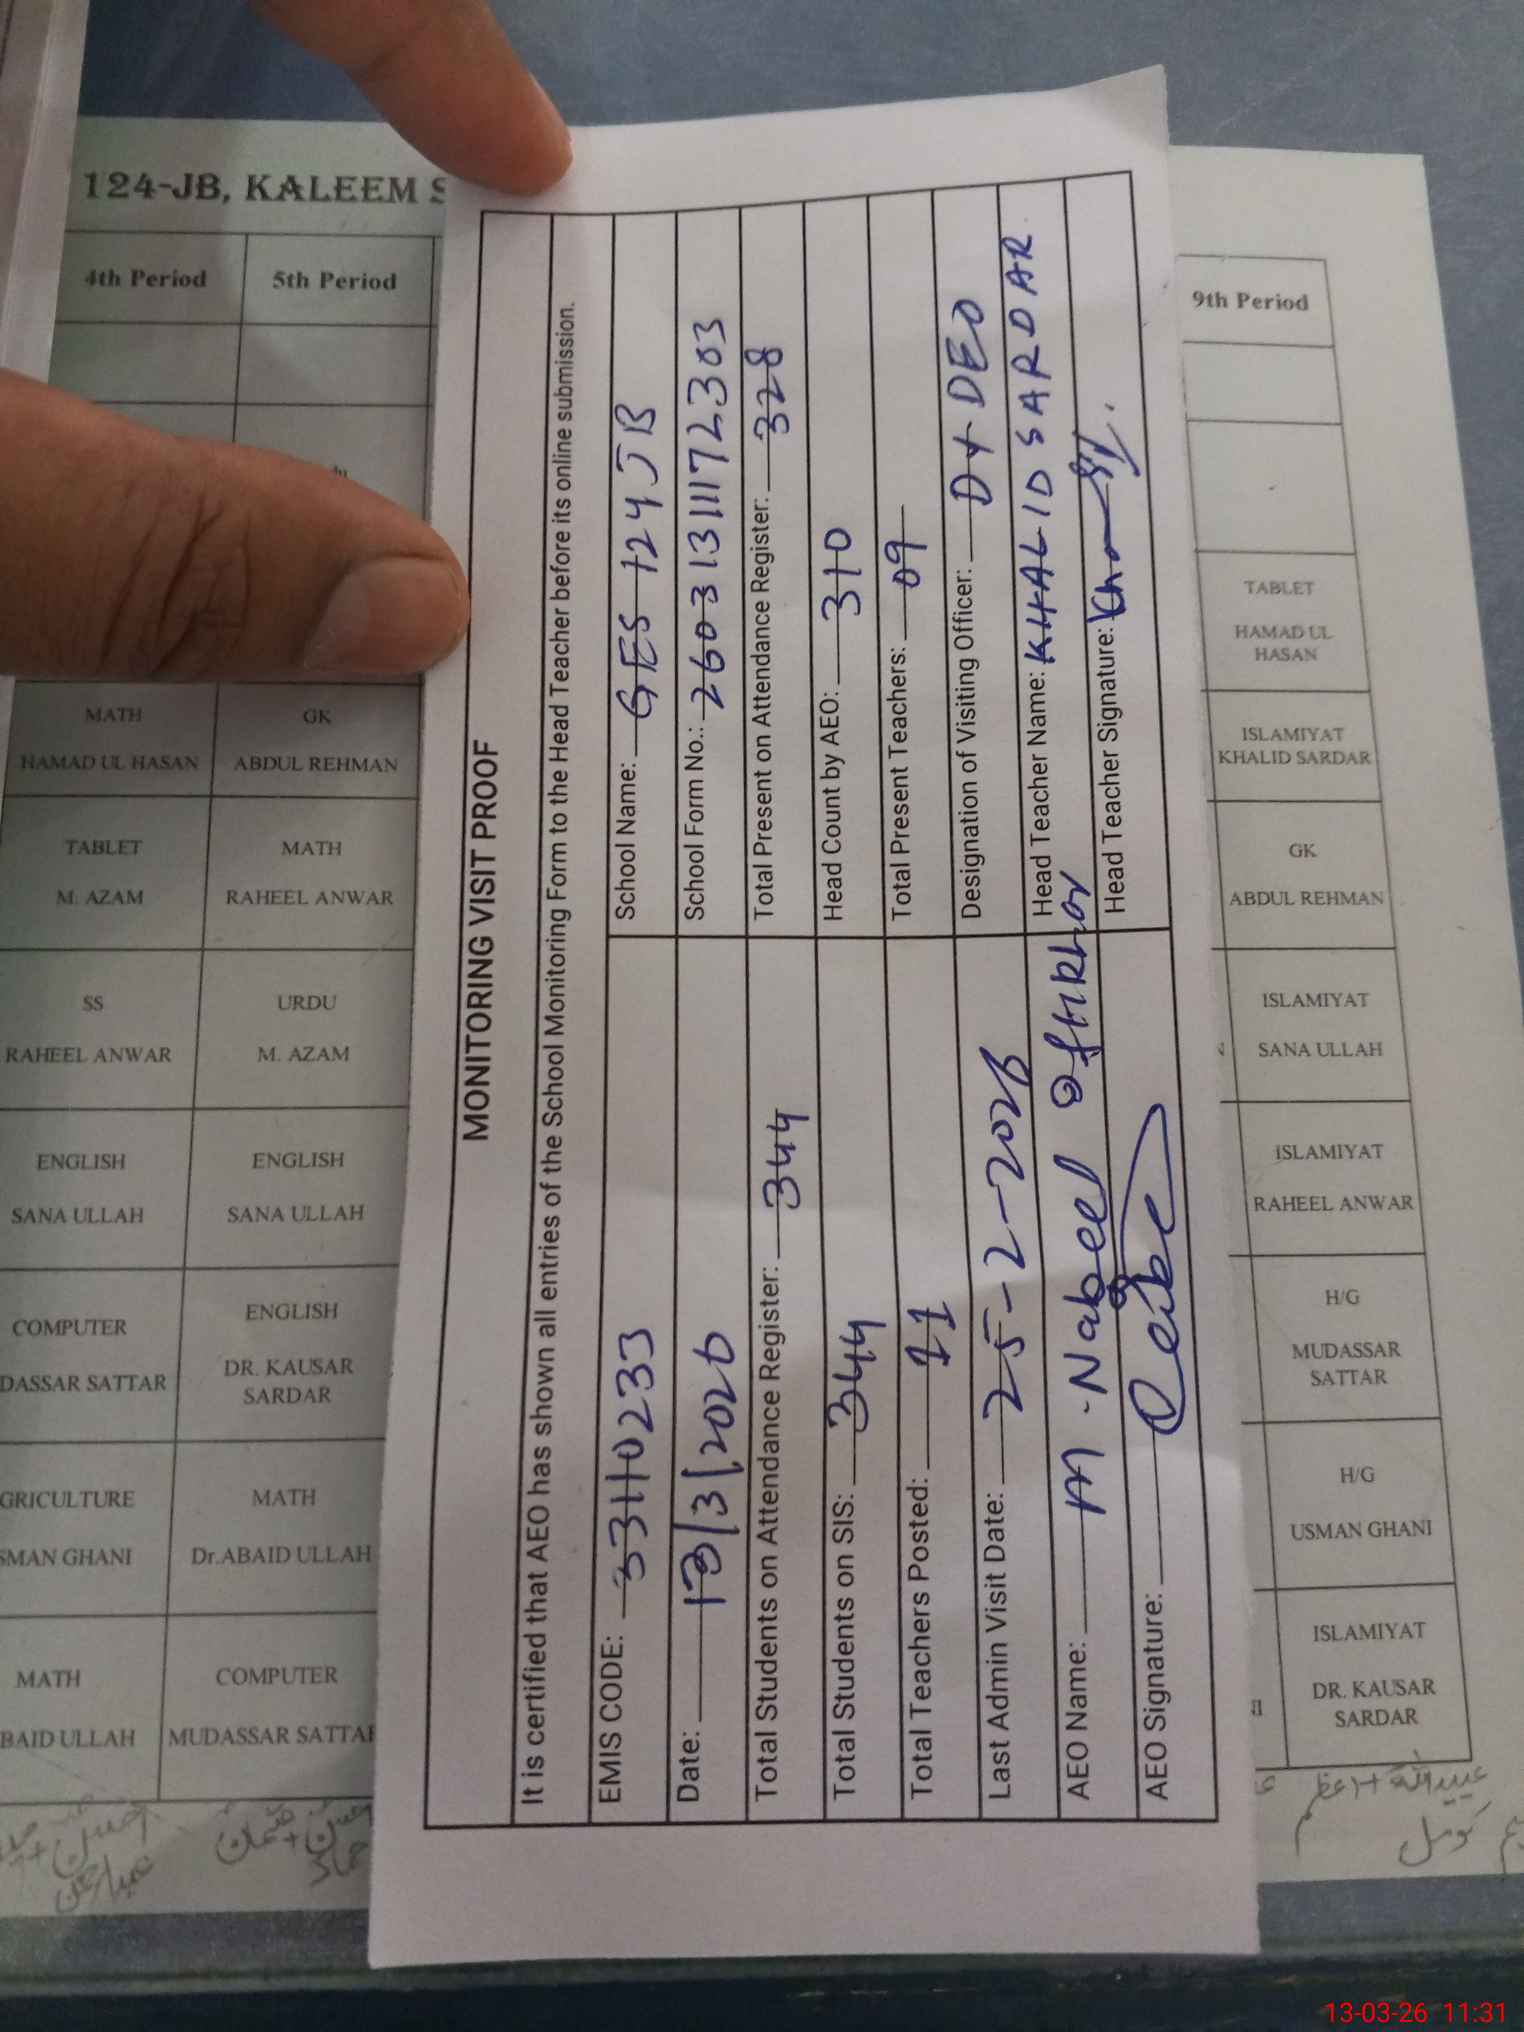 MONITORING VISIT PROOF
It is certified that AEO has shown all entries of the School Monitoring Form to the Head Teacher before its online submission.
EMIS CODE: 33110233
School Name: GES 124 JB
Date: 13/3/2026
School Form No.: 26031311172303
Total Students on Attendance Register: 344
Total Present on Attendance Register: 328
Total Students on SIS: 344
Head Count by AEO: 310
Total Teachers Posted: 11
Total Present Teachers: 09
Last Admin Visit Date: 25-2-2026
Designation of Visiting Officer: Dy DEO
AEO Name: M. Nabeel Iftikhar
Head Teacher Name: KHALID SARDAR
AEO Signature:
Head Teacher Signature:
124-JB, KALEEM S
4th Period 5th Period 9th Period
TABLET
HAMAD UL
HASAN
MATH GK ISLAMIYAT
HAMAD UL HASAN ABDUL REHMAN KHALID SARDAR
TABLET MATH GK
M. AZAM RAHEEL ANWAR ABDUL REHMAN
SS URDU ISLAMIYAT
RAHEEL ANWAR M. AZAM SANA ULLAH
ENGLISH ENGLISH ISLAMIYAT
SANA ULLAH SANA ULLAH RAHEEL ANWAR
COMPUTER ENGLISH H/G
DASSAR SATTAR DR. KAUSAR SARDAR MUDASSAR SATTAR
GRICULTURE MATH H/G
SMAN GHANI Dr.ABAID ULLAH USMAN GHANI
MATH COMPUTER ISLAMIYAT
BAID ULLAH MUDASSAR SATTAR DR. KAUSAR SARDAR
13-03-26 11:31